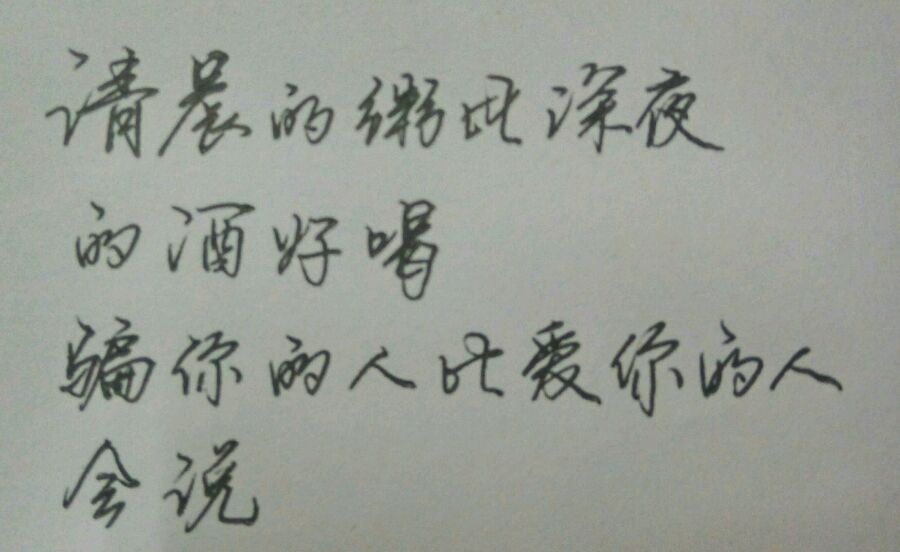 清晨的粥比深夜
的酒好喝
骗你的人比爱你的人
会说